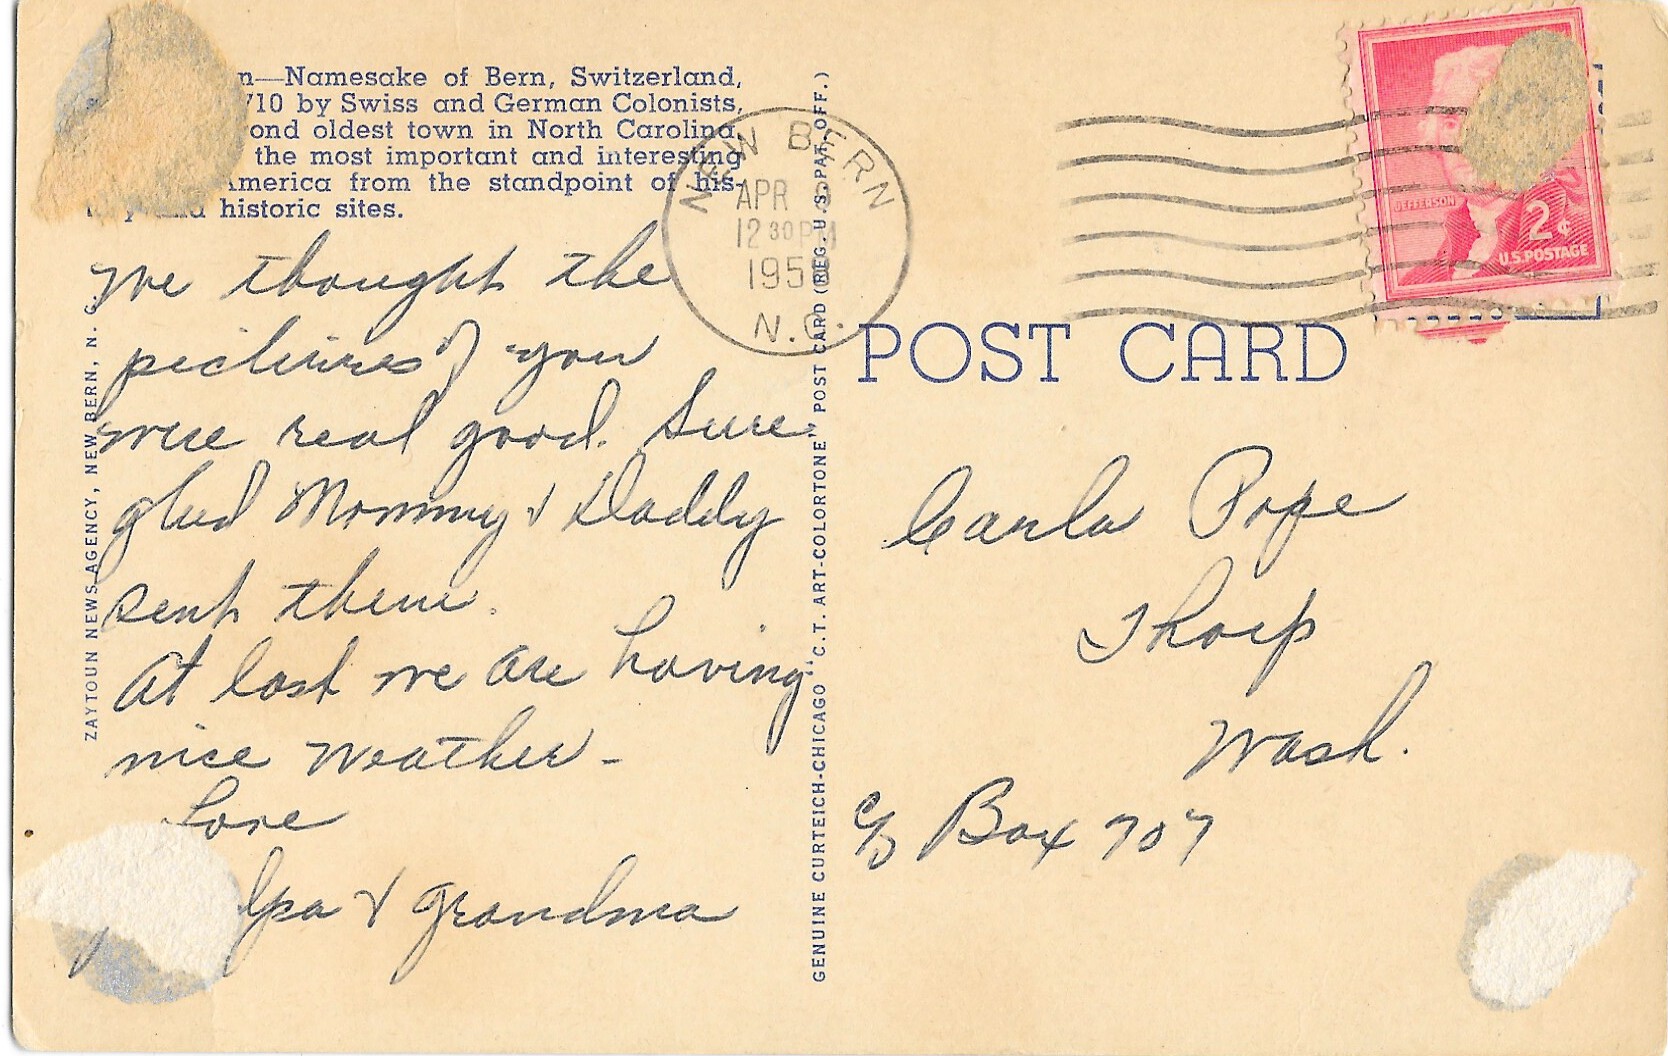 n—Namesake of Bern, Switzerland,
710 by Swiss and German Colonists,
ond oldest town in North Carolina,
the most important and interesting
America from the standpoint of his-
tory and historic sites.
We thought the
pictures of you
were real good. Sure
glad Mommy & Daddy
sent them.
At last we are having
nice weather -
Love
dpa & Grandma
ZAYTOUN NEWS AGENCY, NEW BERN, N. C.
GENUINE CURTEICH-CHICAGO "C.T. ART-COLORTONE" POST CARD (REG. U.S. PAT. OFF.)
NEW BERN
APR
12 30 PM
195
N.C.
JEFFERSON
2¢
U.S. POSTAGE
POST CARD
Carla Pope
Thorp
Wash.
c/o Box 707